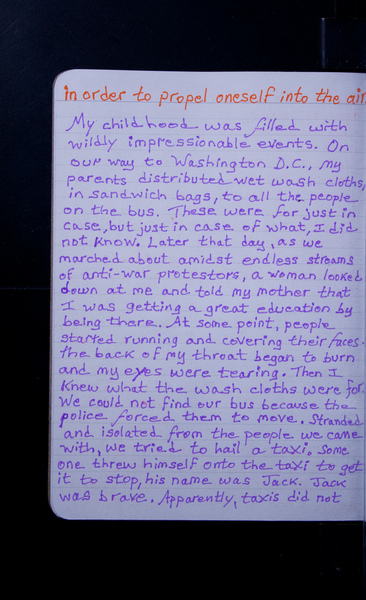 in order to propel oneself into the air
My childhood was filled with
wildly impressionable events. On
our way to Washington D.C., my
parents distributed wet wash cloths,
in sandwich bags, to all the people
on the bus. These were for just in
case, but just in case of what, I did
not know. Later that day, as we
marched about amidst endless streams
of anti-war protestors, a woman looked
down at me and told my mother that
I was getting a great education by
being there. At some point, people
started running and covering their faces.
The back of my throat began to burn
and my eyes were tearing. Then I
knew what the wash cloths were for.
We could not find our bus because the
police forced them to move. Stranded
and isolated from the people we came
with, we tried to hail a taxi. Some
one threw himself onto the taxi to get
it to stop, his name was Jack. Jack
was brave. Apparently, taxis did not